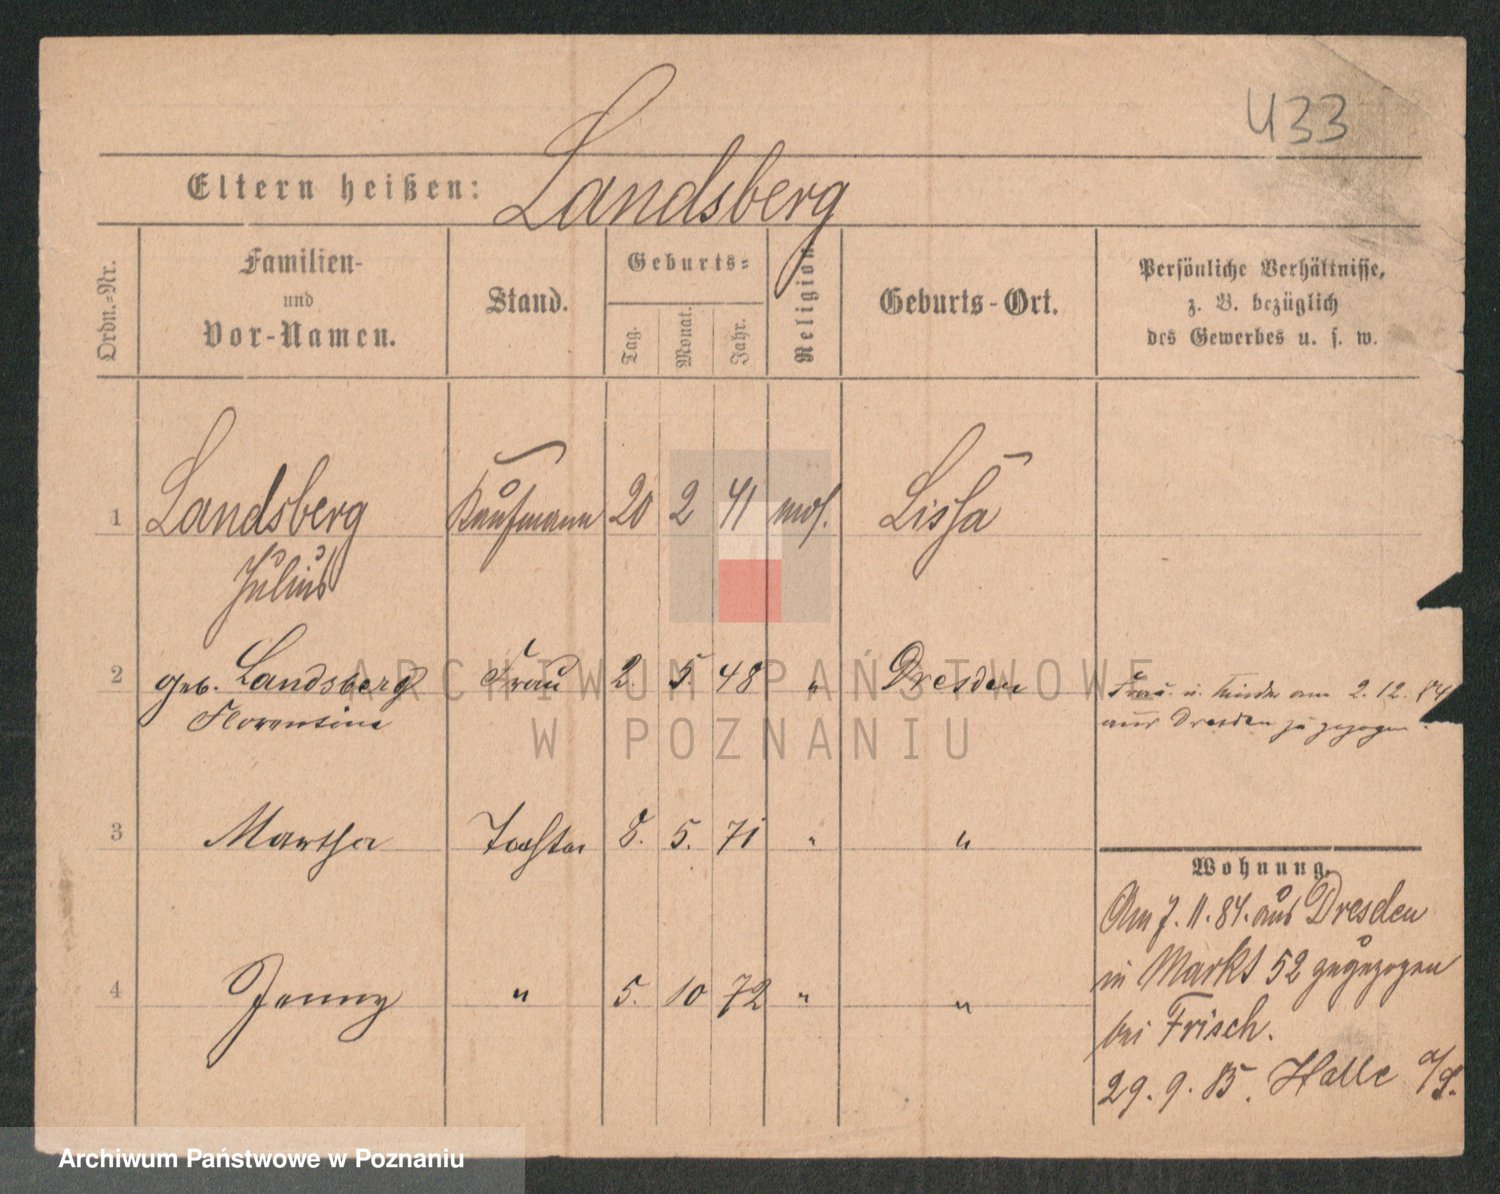 433
Eltern heißen: Landsberg
Ordn.=Nr.
Familien-
und
Vor-Namen.
Stand.
Geburts=
Tag.
Monat.
Jahr.
Religion
Geburts-Ort.
Persönliche Verhältnisse,
z. B. bezüglich
des Gewerbes u. s. w.
1 Landsberg Kaufmann 20 2 41 mos. Lissa
Julius
2 geb. Landsberg Frau 2. 5. 48 " Dresden
Florentine
Frau u. Kinder am 2.12.84
aus Dresden zugezogen.
3 Martha Tochter 8. 5. 71 " "
Wohnung.
Am 7.11.84. aus Dresden
in Markt 52 zugezogen
bei Frisch.
29.9.85. Halle a/S.
4 Jenny " 5. 10 72 " "
ARCHIWUM PAŃSTWOWE
W POZNANIU
Archiwum Państwowe w Poznaniu